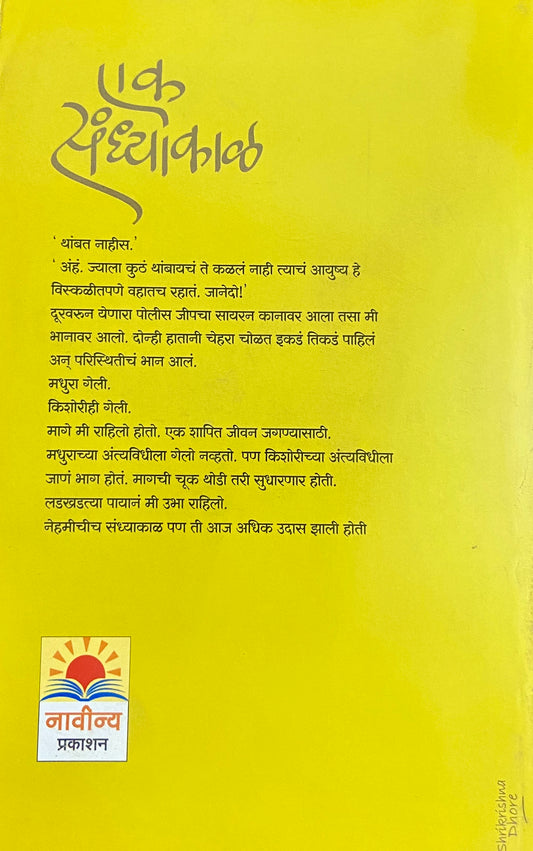 एक
संध्याकाळ
' थांबत नाहीस.'
' अंहं. ज्याला कुठं थांबायचं ते कळलं नाही त्याचं आयुष्य हे
विस्कळीतपणे वहातच रहातं. जानेदो!'
दूरवरुन येणारा पोलीस जीपचा सायरन कानावर आला तसा मी
भानावर आलो. दोन्ही हातानी चेहरा चोळत इकडं तिकडं पाहिलं
अन् परिस्थितीचं भान आलं.
मधुरा गेली.
किशोरीही गेली.
मागे मी राहिलो होतो. एक शापित जीवन जगण्यासाठी.
मधुराच्या अंत्यविधीला गेलो नव्हतो. पण किशोरीच्या अंत्यविधीला
जाणं भाग होतं. मागची चूक थोडी तरी सुधारणार होती.
लडखडत्या पायानं मी उभा राहिलो.
नेहमीचीच संध्याकाळ पण ती आज अधिक उदास झाली होती
नावीन्य
प्रकाशन
shrikrishna
Dhore